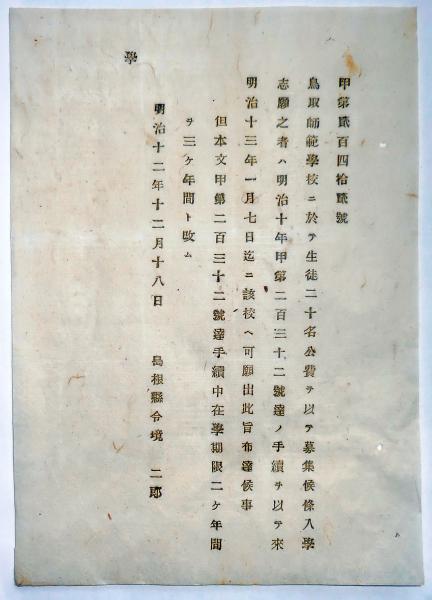 甲第貳百四拾貳號
鳥取師範學校ニ於テ生徒二十名公費ヲ以テ募集候條入學
志願之者ハ明治十年甲第二百三十二號達ノ手續ヲ以テ來
明治十三年一月七日迄ニ該校ヘ可願出此旨布達候事
但本文甲第二百三十二號達手續中在學期限二ケ年間
ヲ三ケ年間ト改ム
明治十二年十二月十八日 島根縣令境 二郎
學